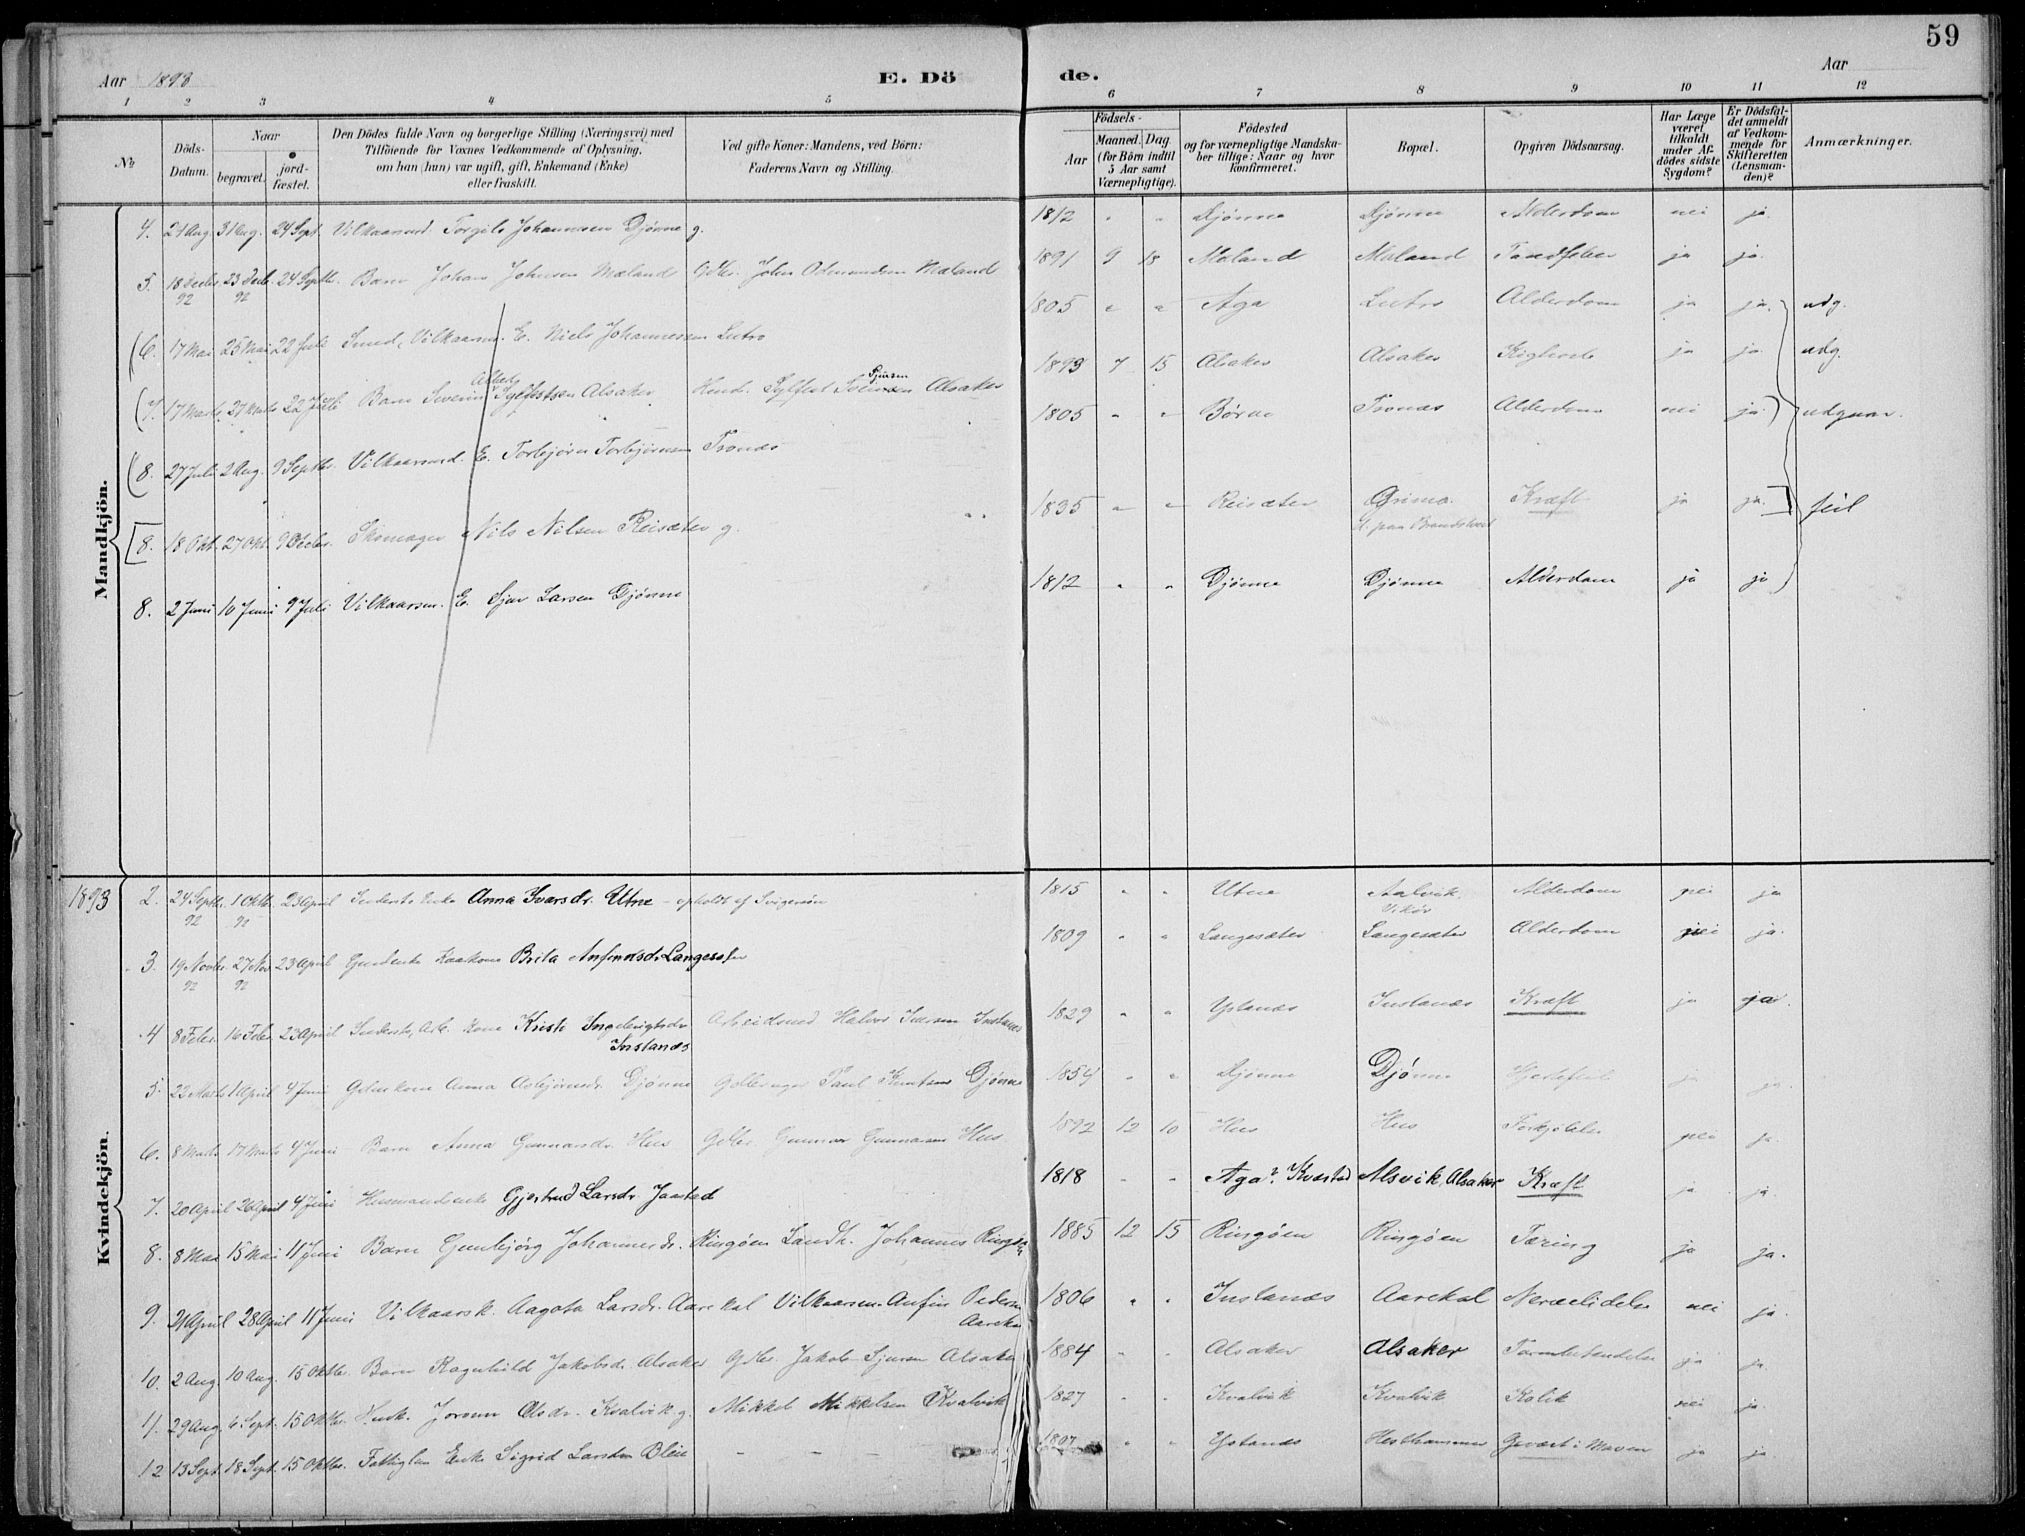 59
Aar 1893
E. Dö
de.
Aar
1 2 3 4 5 6 7 8 9 10 11 12
No
Döds-Datum.
Naar
begravet.
jordfæstet.
Den Dödes fulde Navn og borgerlige Stilling (Næringsvei) med
Tilföiende for Voxnes Vedkommende af Oplysning,
om han (hun) var ugift, gift, Enkemand (Enke)
eller fraskilt.
Ved gifte Koner: Mandens, ved Börn:
Faderens Navn og Stilling.
Födsels-
Aar
Maaned. Dag
(for Börn indtil
5 Aar samt
Værnepligtige).
Födested
og for værnepligtige Mandska-
ber tillige: Naar og hvor
konfirmeret.
Bopæl.
Opgiven Dödsaarsag.
Har Læge
været
tilkaldt
under Af-
dödes sidste
Sygdom?
Er Dödsfal-
det anmeldt
af Vedkom-
mende for
Skifteretten
(Lensman-
den)?
Anmærkninger.
Mandkjön.
4. 21 Aug. 31 Aug. 24 Sept. Vilkaarsmd. Torgils Johannesen Djønne g. 1812 " " Djønne Djønne Alderdom nei ja.
5. 18 Decbr. 92 23 Decb. 92 24 Septbr. Barn Johan Johnsen Mæland Gdbr. John Odmundsen Mæland 1891 9 18 Mæland Mæland Tandfeber ja ja.
(6. 17 Mai 25 Mai 22 Juli Smed, Vilkaarsm. E. Niels Johannessen Lutro 1805 " " Aga Lutro Alderdom ja ja. udg.
(7. 17 Marts 27 Marts 22 Juli Barn Severin Sylfestsen Alsaker Husmd. Sylfest Sjursen Alsaker 1893 7 15 Alsaker Alsaker Kighoste ja ja. udg.
(8. 27 Juli 2 Aug. 9 Septbr. Vilkaarsmd. E. Torbjørn Torbjørnsen Tronæs 1805 " " Børve Tronæs Alderdom nei ja.) udgaar.
[8. 18 Okt. 27 Okt. Skomager Nils Nilsen Reisæter g. 1835 " " Reisæter Grimo. Kræft ja ja.] feil
8. 2 Juni 10 Juni 9 Juli Vilkaarsm. E. Sjur Larsen Djønne 1812 " " Djønne Djønne Alderdom ja ja
Kvindekjön.
1893 2. 24 Septbr. 92 1 Oktb. 92 23 April Inderste Enke Anna Ivarsdr. Utne - opholdt af Svigersøn 1815 " " Utne Aalvik. Vikør Alderdom nei ja
3. 19 Novbr. 92 27 Nov 92 23 April Brita Anfindsdr. Langesæter 1809 " " Langesæter Langesæter Alderdom nei ja.
4 8 Febr. 16 Febr. 23 April Inderste, Arb. Kone Kristi Ingebrigtsdr. Instanæs Arbeidsmd Halvor Iversen Instanæs 1829 " " Ystanæs Instanæs Kræft ja ja.
5. 22 Marts 1 April 4 Juni Gdmkone Anna Asbjørnsdr. Djønne Gdbruger Paul Knutsen Djønne 1854 " " Djønne Djønne Hjertefeil ja ja.
6. 8 Marts 17 Marts 4 Juni Barn Anna Gunnarsdr. Hus Gdbr. Gunnar Gunnarsen Hus. 1892 12 10 Hus Hus Forkjølelse nei ja.
7. 20 April 26 April 4 Juni Husmandsenke Gjertrud Larsdr. Jaastad 1818 " " Aga? Kvestad Alsvik, Alsaker Kræft ja ja.
8. 8 Mai 15 Mai 11 Juni Barn Gunbjørg Johannesdr. Ringøen Landh. Johannes Ringøen 1885 12 15 Ringøen Ringøen Tæring ja ja.
9. 21 April 28 April 11 Juni Vilkaarsk. Aagota Larsdr. Aarekol Vilkaarsm. Anfin Pedersen Aarekol 1806 " " Instanæs Aarekol Nervelidelse nei ja.
10. 2 Aug. 10 Aug. 15 Oktbr. Barn Ragnhild Jakobsdr. Alsaker Gdbr. Jakob Sjursen Alsaker 1884 " " Alsaker Alsaker Tarmbetændelse ja ja.
11. 29 Aug. 6 Sept. 15 Oktbr. Husk. Joron Olsdr. Kvalvik g. Mikkel Mikkelsen Kvalvik 1827 " " Kvalvik Kvalvik Kolik nei ja.
12 13 Sept. 18 Sept. 15 Oktbr. Fattiglem Enke Sigrid Larsdr. Bleie - - - 1807 " " Ystanæs Hesthammer Gevæxt i Maven ja ja.